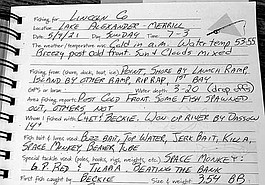 Fishing for: LINCOLN CO
Location: LAKE ALEXANDER - MERRILL
Date: 5/9/21 SUNDAY Time: 7-3
The weather/temperature was: Cold in a.m. Water temp 53-55
Breezy post cold front. Sun & Clouds mixed
Fishing from (shore, dock, boat, ice): POINT, SHORE BY LAUNCH RAMP,
ISLAND BY OTHER RAMP, RIP RAP, 1st BAY
GPS or Water depth: 3-20 (drop off)
Area fishing report: POST COLD FRONT. SOME FISH SPAWNED
OUT, OTHERS NOT
Whom I fished with: CHET & BECKIE. WON UP RIVER BY DASSOW
Fish bit & lures used: BUZZ BAIT, TOP WATER, JERK BAIT, K.I.L.L.A,
SPACE MONKEY, BEAVER TUBE
Special tackle used (poles, hooks, rigs, weights, etc.): SPACE MONKEY:
G.P. RED & TILARA. BEATING THE BANK
First fish caught by: BECKIE Size & weight: 3.54 LB.